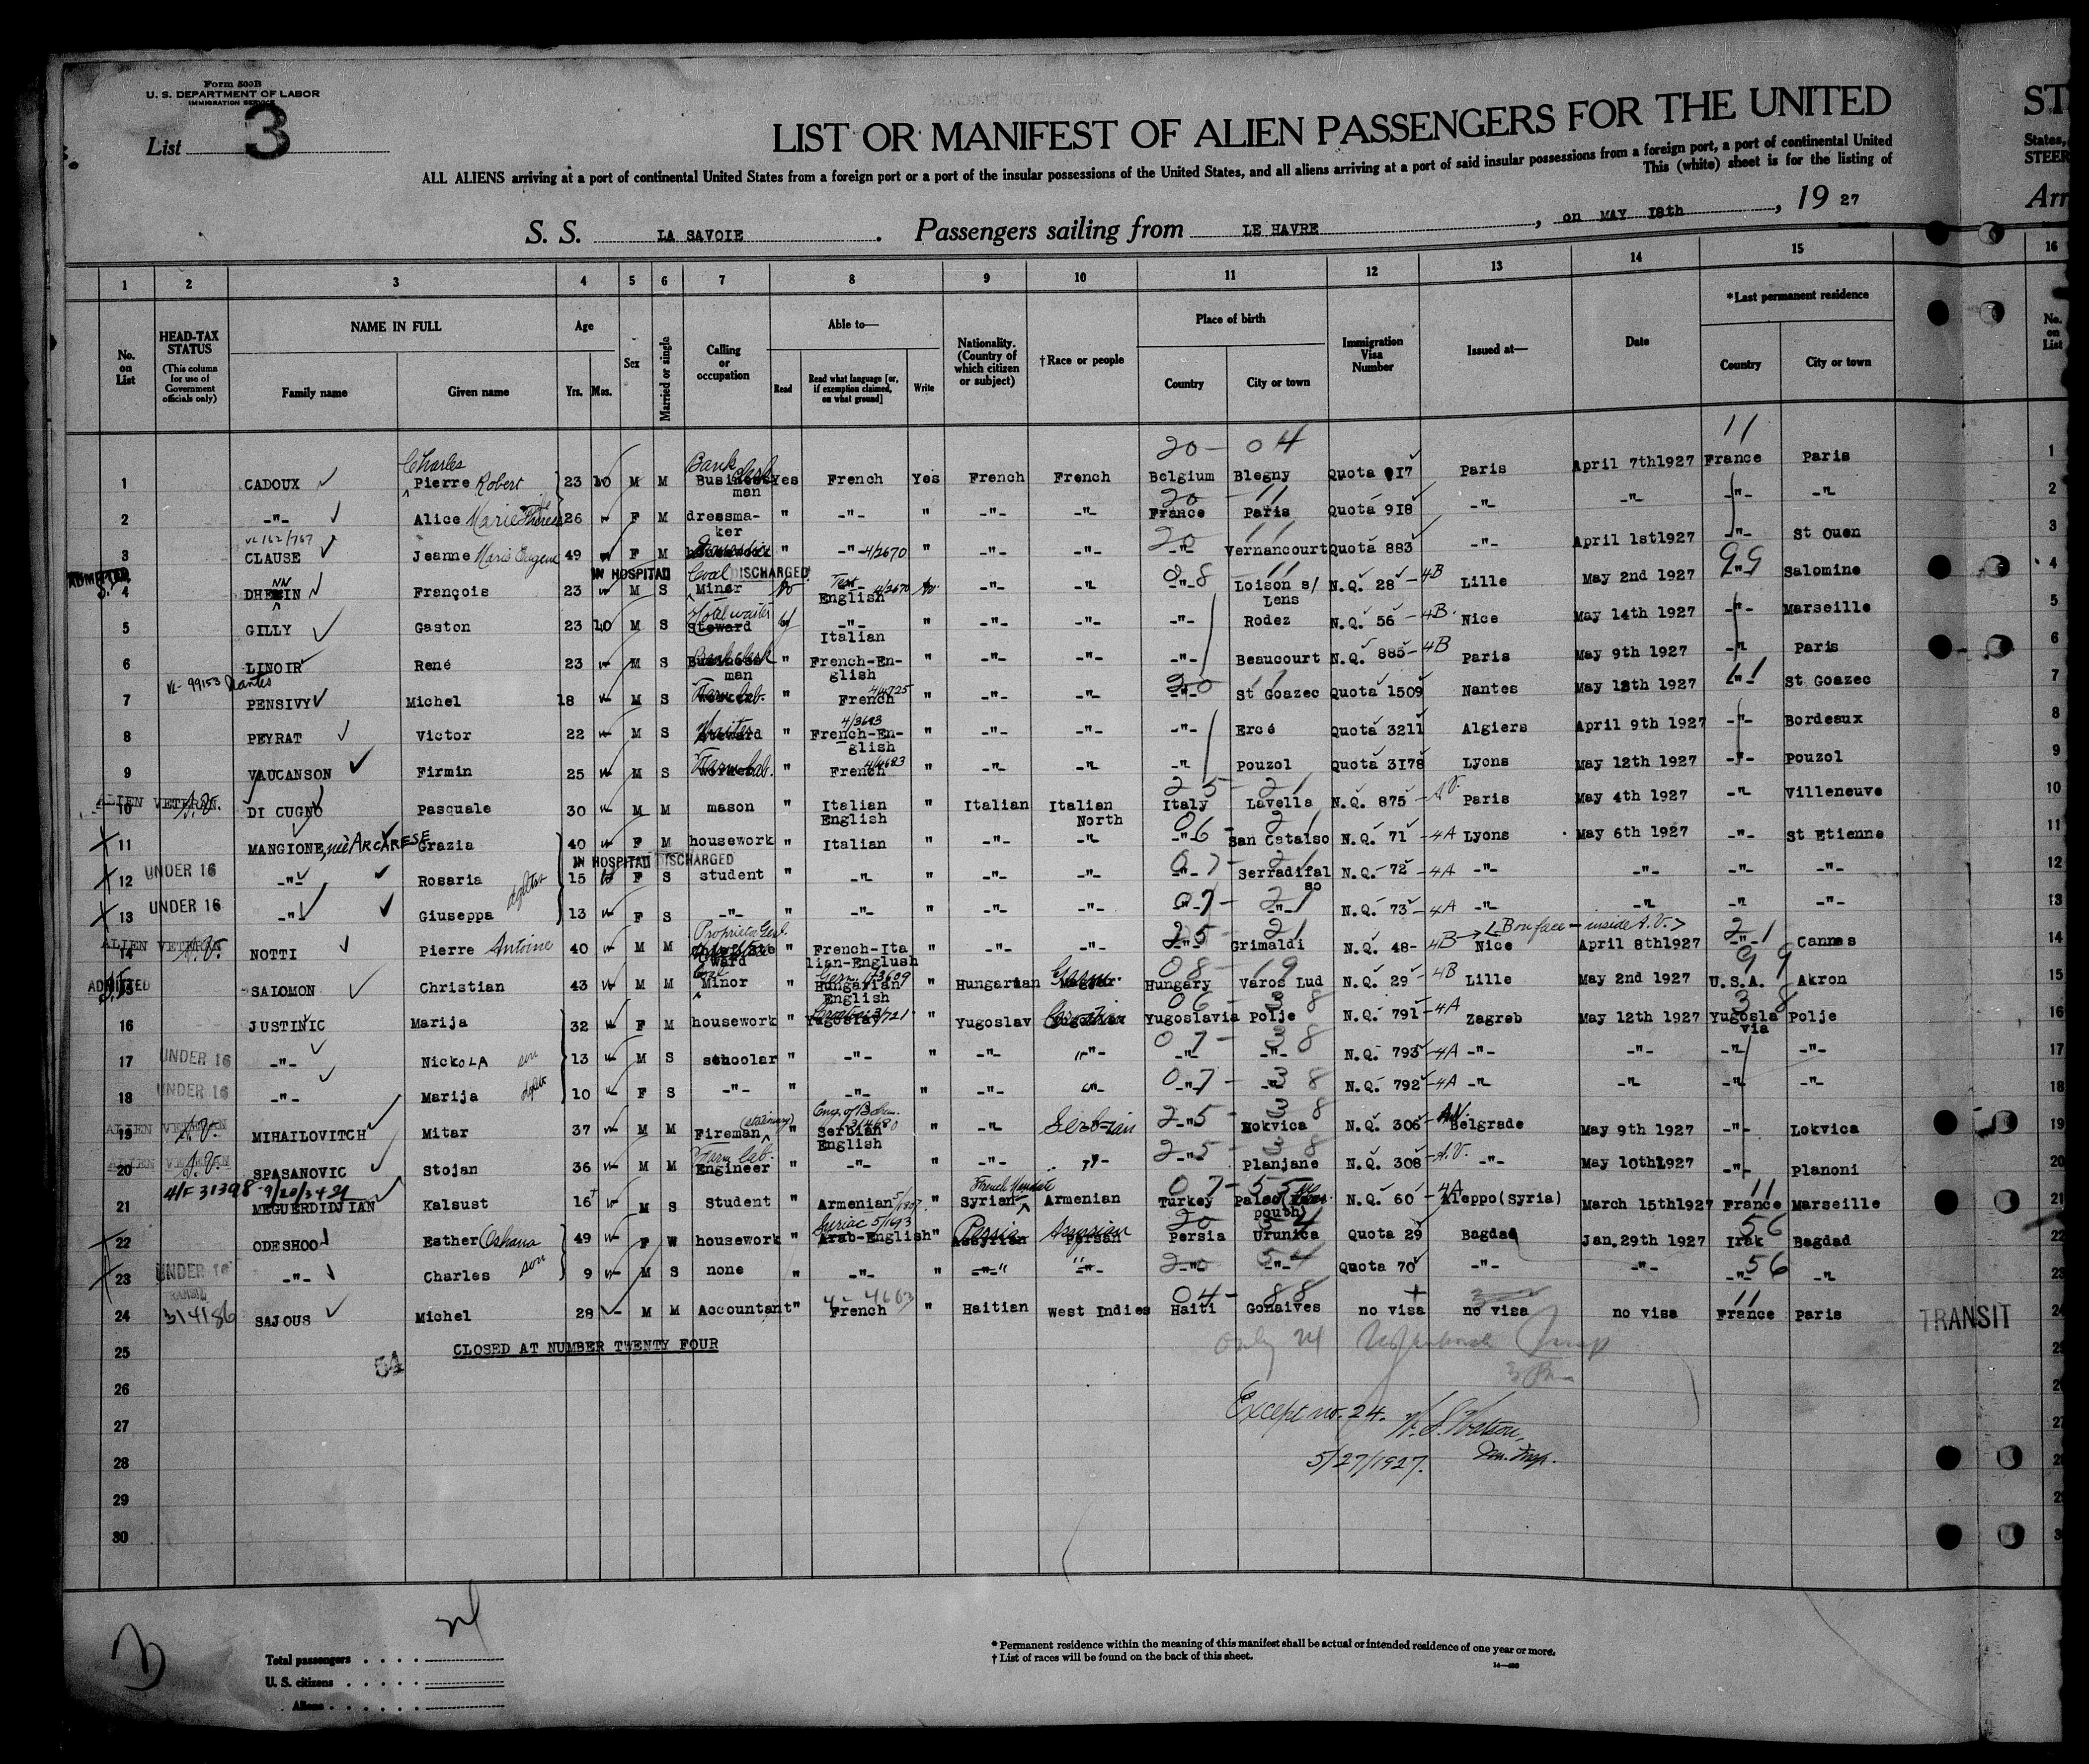 Form 500B
U. S. DEPARTMENT OF LABOR
IMMIGRATION SERVICE
List 3
LIST OR MANIFEST OF ALIEN PASSENGERS FOR THE UNITED
ST
ALL ALIENS arriving at a port of continental United States from a foreign port or a port of the insular possessions of the United States, and all aliens arriving at a port of said insular possessions from a foreign port, a port of continental United
States,
This (white) sheet is for the listing of
STEER
S. S. LA SAVOIE. Passengers sailing from LE HAVRE, on MAY 18th, 19 27
Arr
1 2 3 4 5 6 7 8 9 10 11 12 13 14 15 16
No. on List
HEAD-TAX STATUS
(This column for use of Government officials only)
NAME IN FULL
Family name Given name
Age
Yrs. Mos.
Sex
Married or single
Calling or occupation
Able to—
Read
Read what language [or, if exemption claimed, on what ground]
Write
Nationality. (Country of which citizen or subject)
†Race or people
Place of birth
Country City or town
Immigration Visa Number
Issued at—
Date
*Last permanent residence
Country City or town
No. on List
1 CADOUX Charles Pierre Robert 23 10 M M Bank clerk Business man Yes French Yes French French 20 - 04 Belgium Blegny Quota 917 Paris April 7th1927 11 France Paris 1
2 -"- Alice Marie 26 F M dressmaker " -"- " -"- -"- 20 - 11 France Paris Quota 918 -"- -"- -"- -"- 2
3 CLAUSE Jeanne Marie Eugene 49 F M " -"- 4/2670 " -"- -"- 20 11 -"- Vernancourt Quota 883 -"- April 1st1927 -"- St Ouen 3
ADMITTED IN HOSPITAL DISCHARGED
4 DHENNIN François 23 M S Coal Miner No English 4/2670 No -"- -"- 08 - 11 -"- Loison s/ Lens N.Q. 28 - 4B Lille May 2nd 1927 99 -"- Salomine 4
5 GILLY Gaston 23 10 M S Hotel waiter Steward -"- Italian " -"- -"- -"- Rodez N.Q. 56 - 4B Nice May 14th 1927 -"- Marseille 5
6 LINOIR René 23 M S Bank clerk Business man " French-English " -"- -"- -"- Beaucourt N.Q. 885 - 4B Paris May 9th 1927 -"- Paris 6
VL- 99153 Nantes
7 PENSIVY Michel 18 M S Farm lab. " French " -"- -"- 20 11 -"- St Goazec Quota 1509 Nantes May 12th 1927 11 -"- St Goazec 7
8 PEYRAT Victor 22 M S Waiter " 4/3693 French-English " -"- -"- -"- Ercé Quota 3211 Algiers April 9th 1927 -"- Bordeaux 8
9 VAUCANSON Firmin 25 M S Farm lab. " French " -"- -"- -"- Pouzol Quota 3178 Lyons May 12th 1927 -"- Pouzol 9
10 ALIEN VETERAN A.V. DI CUGNO Pasquale 30 M M mason " Italian English " Italian Italian North 25 - 21 Italy Lavella N.Q. 875 - A.V. Paris May 4th 1927 -"- Villeneuve 10
11 MANGIONE, neè ARCARESE Grazia 40 F M housework " Italian " -"- -"- 06 - 21 -"- San Cataldo N.Q. 71 - 4A Lyons May 6th 1927 -"- St Etienne 11
IN HOSPITAL DISCHARGED
12 UNDER 16 -"- Rosaria 15 F S student " -"- " -"- -"- 07 - 21 -"- Serradifalso N.Q. 72 - 4A -"- -"- -"- -"- 12
13 UNDER 16 -"- Giuseppa 13 F S -"- " -"- " -"- -"- 07 - 21 -"- -"- N.Q. 73 - 4A -"- -"- -"- -"- 13
14 ALIEN VETERAN A.V. NOTTI Pierre Antoine 40 M M " French-Italian-English " -"- -"- 25 - 21 -"- Grimaldi N.Q. 48 - 4B Nice April 8th1927 21 -"- Cannes 14
15 ADMITTED SALOMON Christian 43 M M Coal Minor " Hungarian English " Hungarian 08 - 19 Hungary Varos Lud N.Q. 29 - 4B Lille May 2nd 1927 99 U.S.A. Akron 15
16 JUSTINIC Marija 32 F M housework " Yugoslav " Yugoslav Croatian 06 - 38 Yugoslavia Polje N.Q. 791 - 4A Zagreb May 12th 1927 38 Yugoslavia Polje 16
17 UNDER 16 -"- Nickola son 13 M S schoolar " -"- " -"- -"- 07 - 38 -"- -"- N.Q. 793 - 4A -"- -"- -"- -"- 17
18 UNDER 16 -"- Marija 10 F S -"- " -"- " -"- -"- 07 - 38 -"- -"- N.Q. 792 - 4A -"- -"- -"- -"- 18
19 ALIEN VETERAN A.V. MIHAILOVITCH Mitar 37 M M Fireman (stationary) " Serbian English " -"- Serbian 25 - 38 -"- Mokvica N.Q. 306 A.V. Belgrade May 9th 1927 -"- Lokvica 19
20 ALIEN VETERAN A.V. SPASANOVIC Stojan 36 M M Farm lab. Engineer " -"- " -"- -"- 25 - 38 -"- Planjane N.Q. 308 - A.V. -"- May 10th1927 -"- Planoni 20
21 4/F 31398 MEGUERDIDJIAN Kalsust 16 M S Student " Armenian " French Mandate Syrian Armenian 07 - 55 Turkey N.Q. 60 - 4A Aleppo(Syria) March 15th1927 11 France Marseille 21
22 ODESHOO Esther Oshana 49 F W housework " Syriac 5/1693 Arab-English " Persia Assyrian 20 - 54 Persia Urunica Quota 29 Bagdad Jan.29th 1927 56 Irak Bagdad 22
23 UNDER 16 -"- Charles son 9 M S none " -"- " -"- -"- 20 - 54 -"- -"- Quota 70 -"- -"- 56 -"- -"- 23
24 314186 SAJOUS Michel 28 M M Accountant " French " Haitian West Indies 04 - 88 Haiti Gonaives no visa no visa no visa 11 France Paris TRANSIT 24
25 CLOSED AT NUMBER TWENTY FOUR
54
26
27 Except no. 24. W. S. Watson,
28 5/27/1927. Imm. Insp.
29
30
24
3
Total passengers
U. S. citizens
Aliens
* Permanent residence within the meaning of this manifest shall be actual or intended residence of one year or more.
† List of races will be found on the back of this sheet.